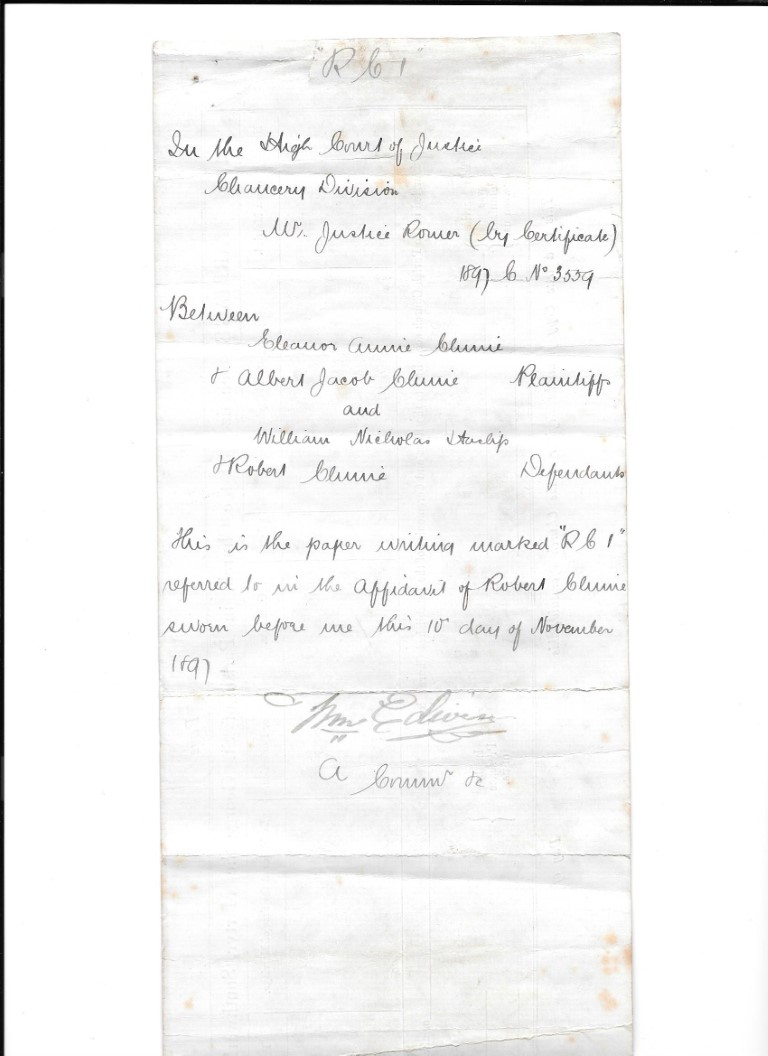 "R C 1"
In the High Court of Justice
Chancery Division
Mr. Justice Romer (by Certificate)
1897 C No 3559
Between
Eleanor Annie Clunie
& Albert Jacob Clunie Plaintiffs
and
William Nicholas Haslip
& Robert Clunie Defendants
This is the paper writing marked "R C 1"
referred to in the Affidavit of Robert Clunie
sworn before me this 10 day of November
1897
Wm
A Commr &c